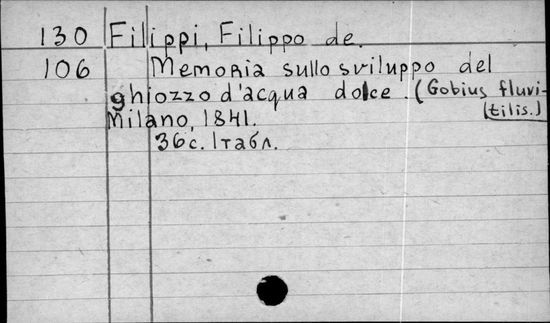 130 Filippi, Filippo de.
106 Memoria sullo sviluppo del
ghiozzo d'acqua dolce. (Gobius fluvi-
(tilis.)
Milano, 1841.
36с. 1табл.